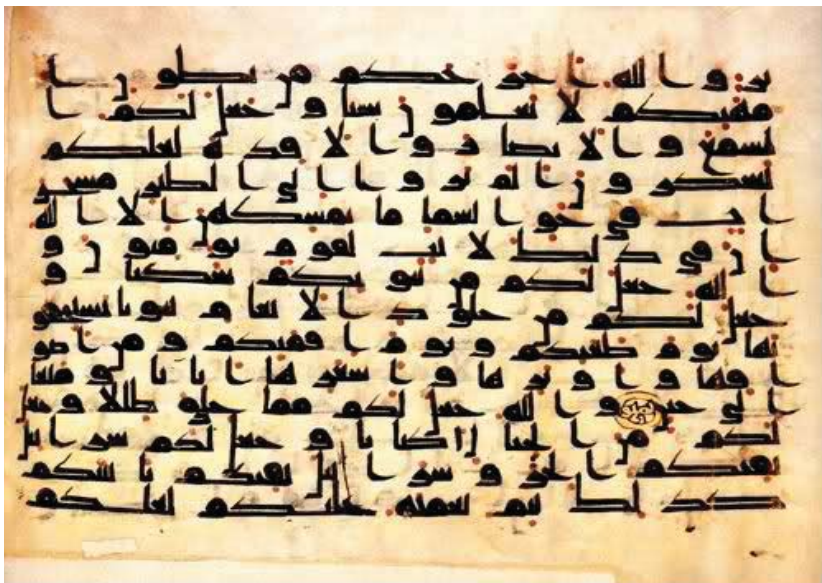 ير والله اخرجكم من بطون ا
مهتكم لا تعلمون شيا وجعل لكم ا
لسمع والابصر والافدة لعلكم
تشكرون الم يروا الى الطير مسخر
ات في جو السما ما يمسكهن الا الله
ان في ذلك لايت لقوم يومنون و
الله جعل لكم من بيوتكم سكنا و
جعل لكم من جلود الانعام بيوتا تستخفو
نها يوم ظعنكم ويوم اقمتكم ومن اصو
افها واوبرها واشعرها اثاثا ومتعا
الى حين والله جعل لكم مما خلق ظللا وجعل
لكم من الجبل اكننا وجعل لكم سرابيل
تقيكم الحر وسرابيل تقيكم باسكم
كذلك يتم نعمته عليكم لعلكم